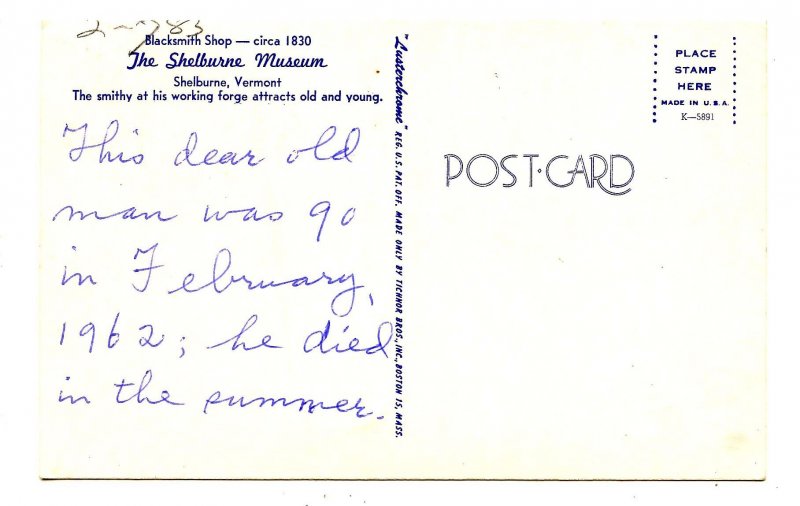 Blacksmith Shop — circa 1830
The Shelburne Museum
Shelburne, Vermont
The smithy at his working forge attracts old and young.
This dear old
man was 90
in February,
1962; he died
in the summer.
"Lusterchrome" REG. U.S. PAT. OFF. MADE ONLY BY TICHNOR BROS., INC., BOSTON 15, MASS.
POST·CARD
PLACE
STAMP
HERE
MADE IN U.S.A.
K—5891